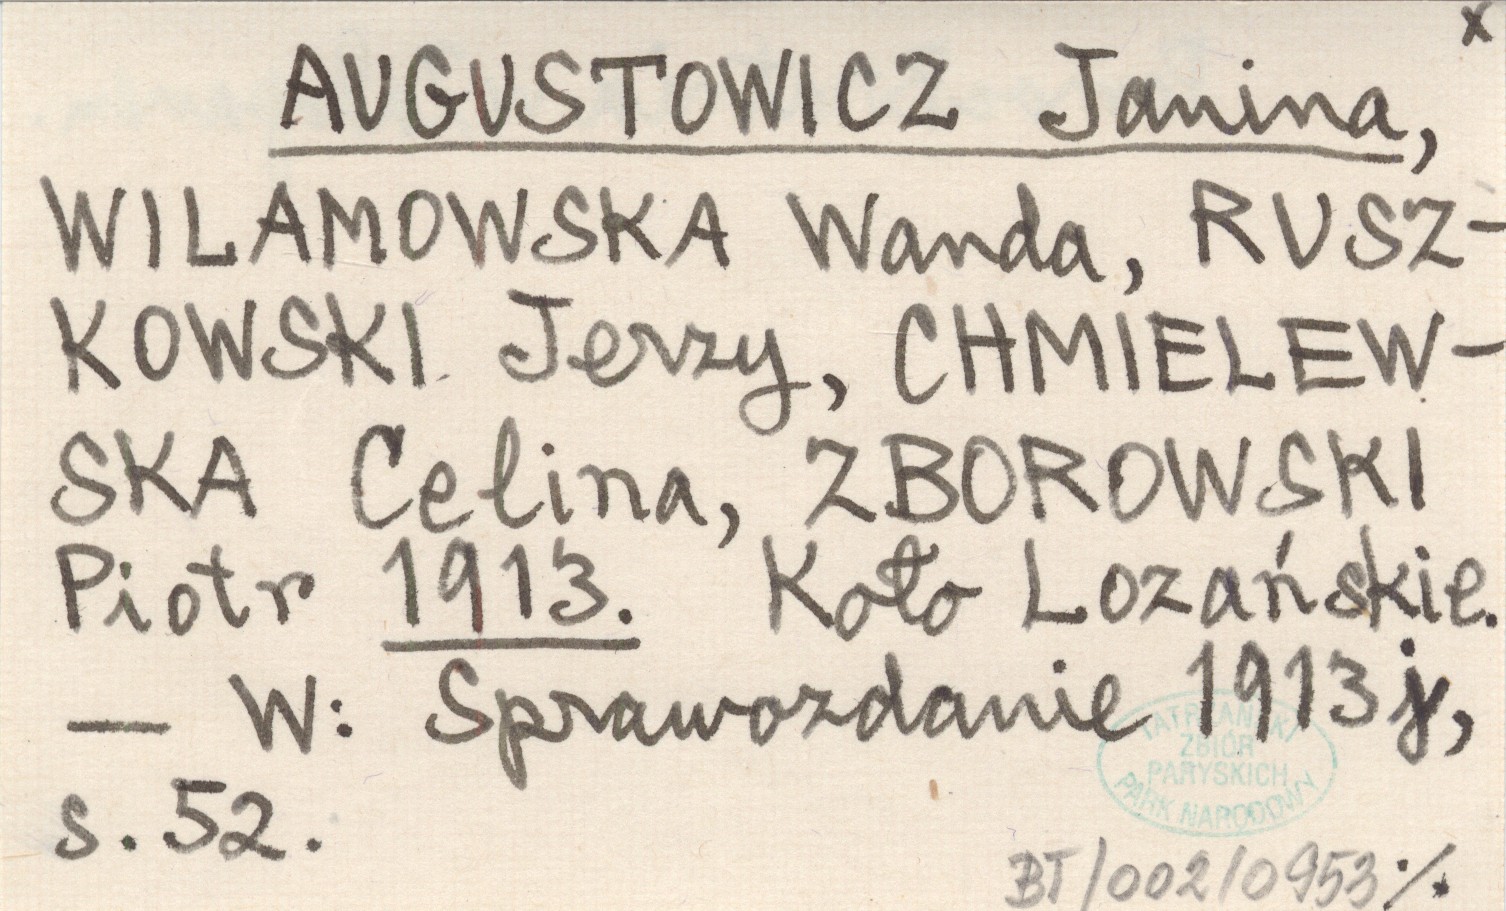 x
AUGUSTOWICZ Janina,
WILAMOWSKA Wanda, RUSZ-
KOWSKI Jerzy, CHMIELEW-
SKA Celina, ZBOROWSKI
Piotr 1913. Koło Lozańskie.
— W: Sprawozdanie 1913 j,
s. 52.
TATRZAŃSKI
ZBIÓR
PARYSKICH
PARK NARODOWY
BT/002/0953 ./.